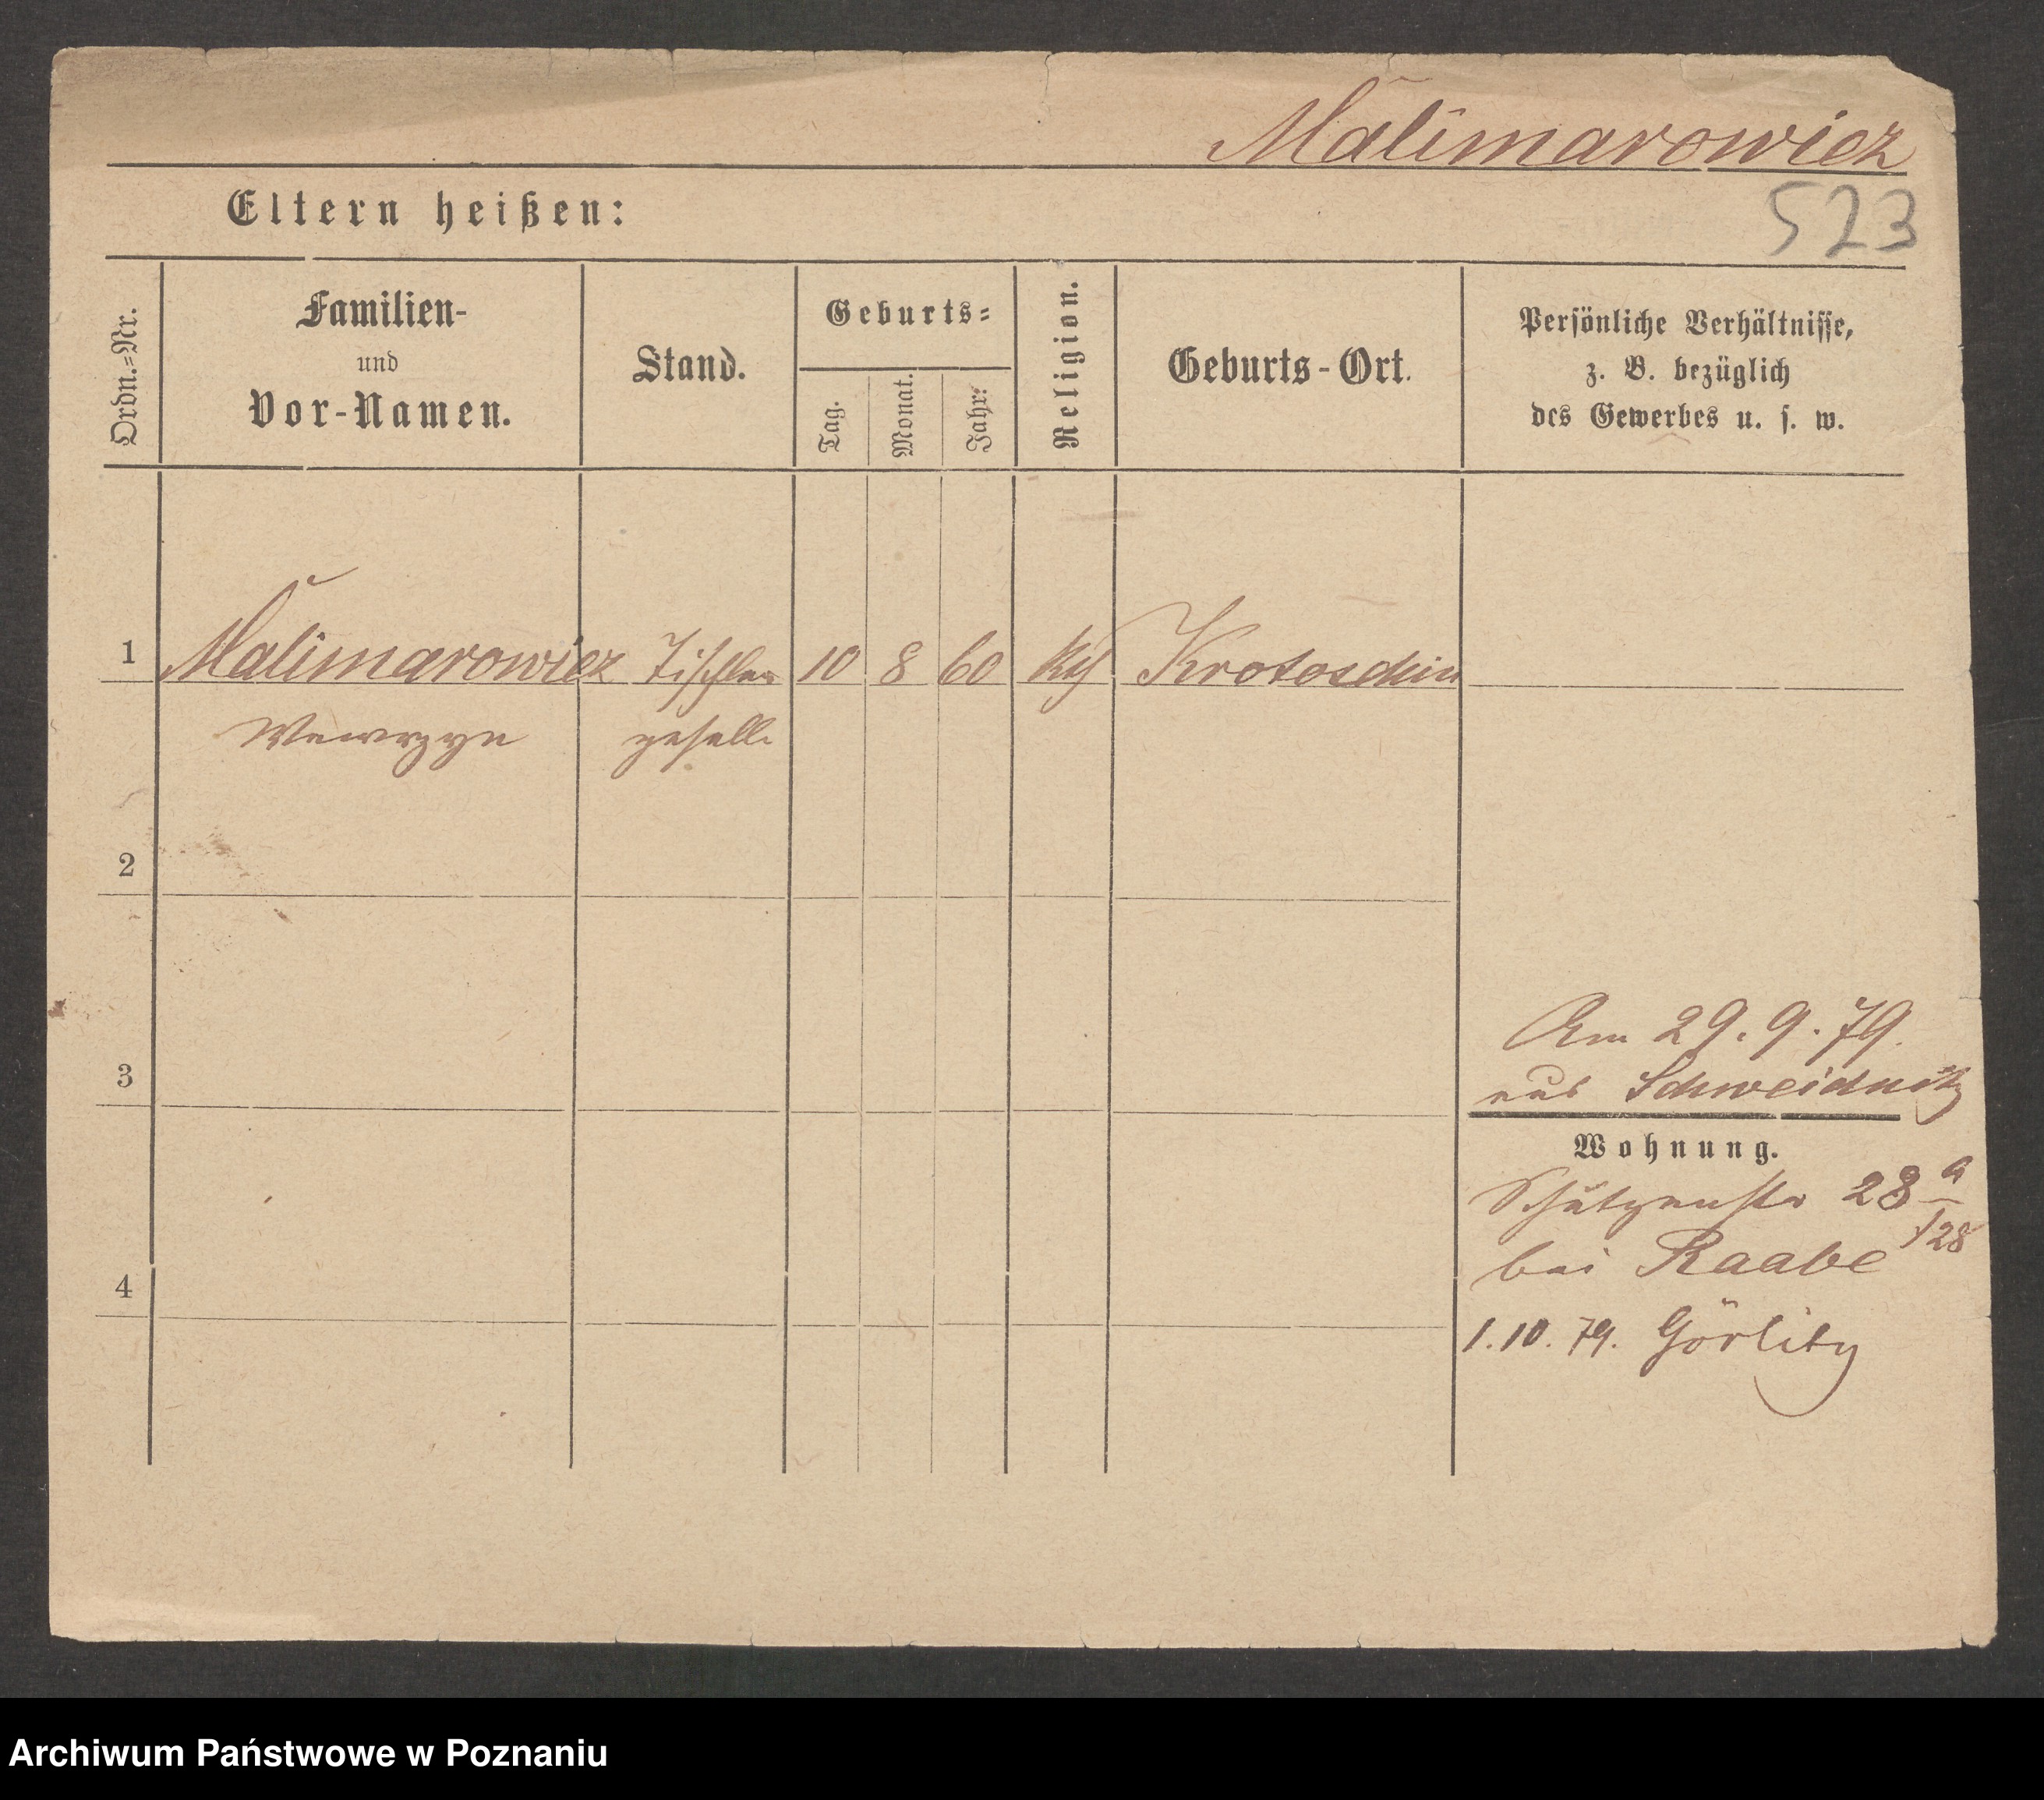 Malimarowicz
523
Eltern heißen:
Ordn.=Nr.
Familien-
und
Vor-Namen.
Stand.
Geburts=
Tag.
Monat.
Jahr:
Religion.
Geburts-Ort.
Persönliche Verhältnisse,
z. B. bezüglich
des Gewerbes u. s. w.
1 Malimarowicz Tischler 10 8 60 Krotoschin
Wawrzyn geselle
2
3
4
Am 29.9.79.
aus Schweidnitz
Wohnung.
Schützenstr 28 a
/28
bei Raabe
1.10.79. Görlitz
Archiwum Państwowe w Poznaniu